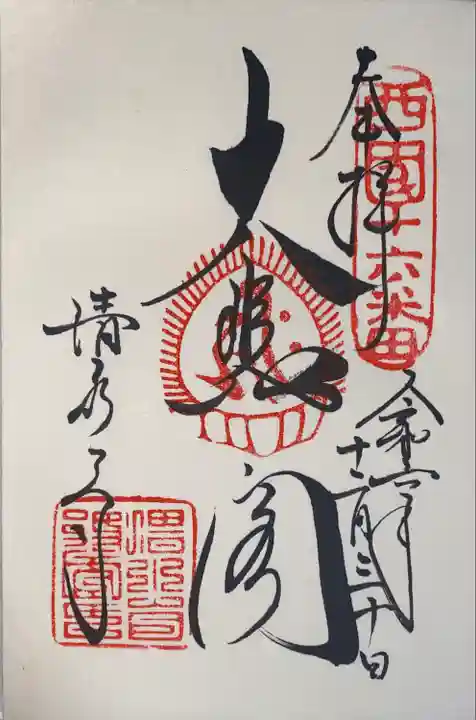 奉拝
西国十六番
令和六年十二月三十日
大悲閣
清水寺